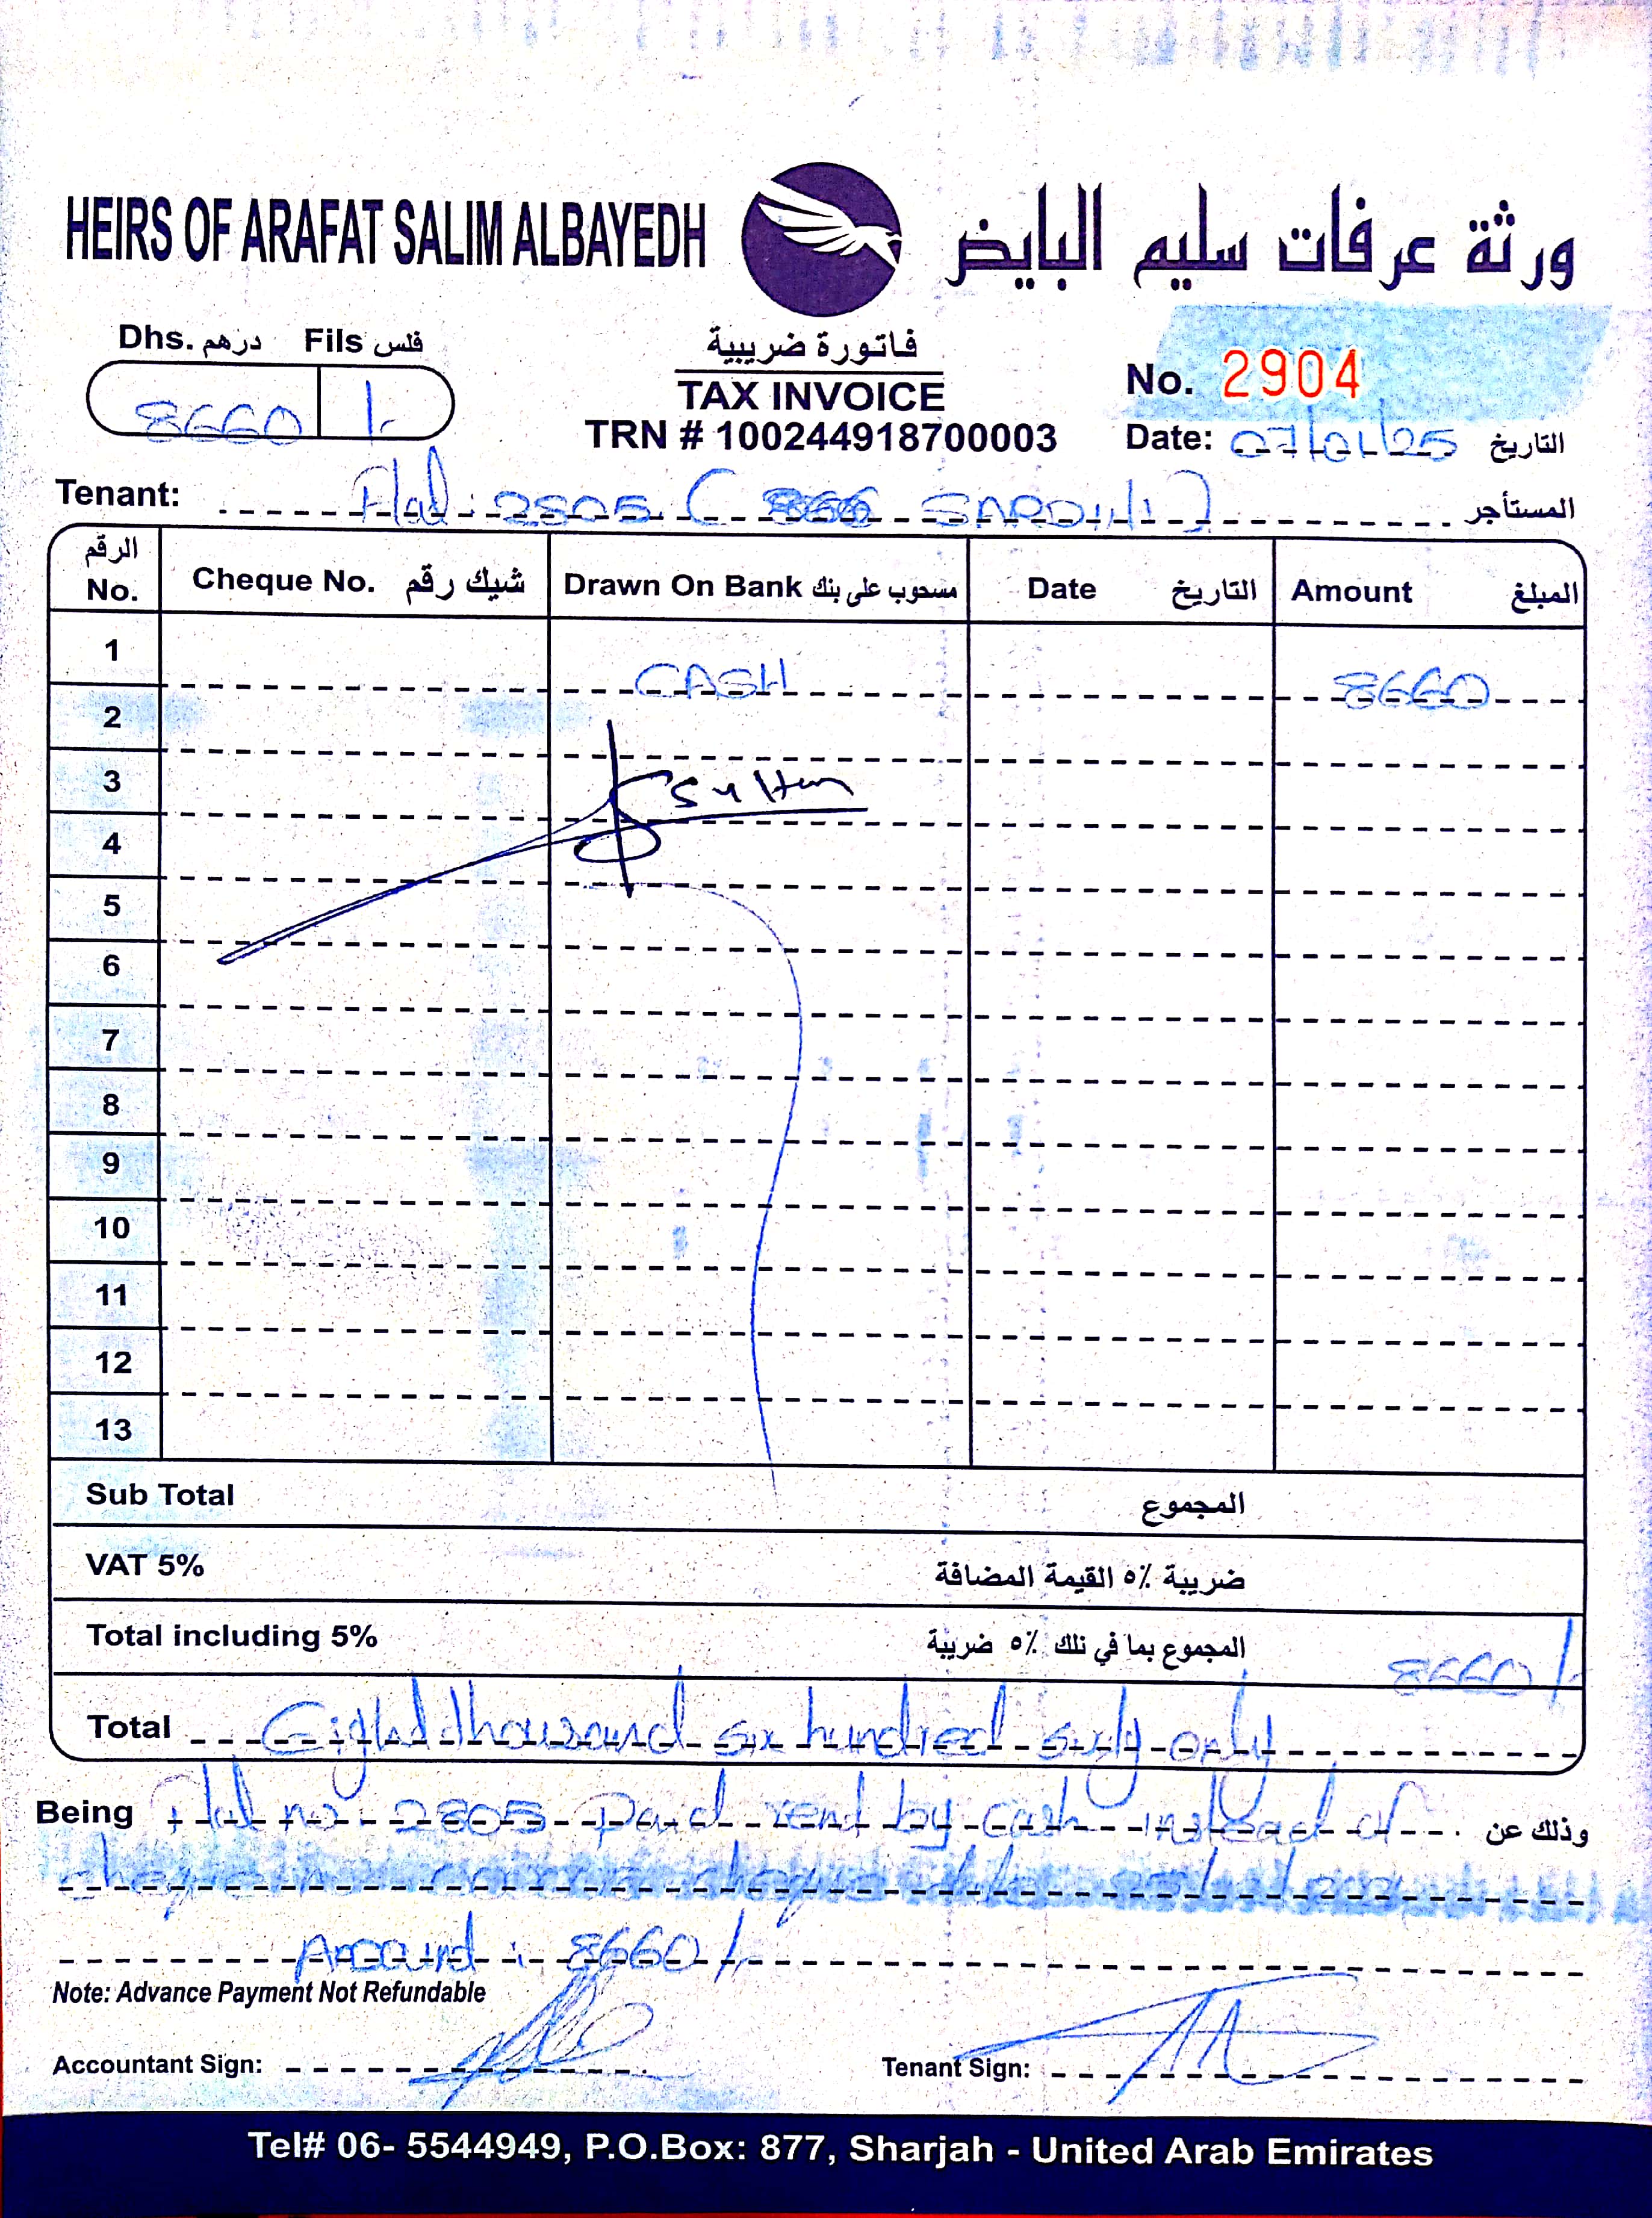 HEIRS OF ARAFAT SALIM ALBAYEDH
ورثة عرفات سليم البايض
Dhs. درهم Fils فلس
8660 /-
فاتورة ضريبية
TAX INVOICE
TRN # 100244918700003
No. 2904
Date: 07/01/25 التاريخ
Tenant: Flat: 2805 ( المستأجر
الرقم No. Cheque No. شيك رقم Drawn On Bank مسحوب على بنك Date التاريخ Amount المبلغ
1 CASH 8660
2
3 Sultan
4
5
6
7
8
9
10
11
12
13
Sub Total المجموع
VAT 5% ضريبة ٥٪ القيمة المضافة
Total including 5% المجموع بما في ذلك ٥٪ ضريبة 8660/-
Total Eight thousand six hundred sixty only
Being Flat no 2805 Paid rent by cash instead of وذلك عن
Amount: 8660/-
Note: Advance Payment Not Refundable
Accountant Sign:
Tenant Sign:
Tel# 06- 5544949, P.O.Box: 877, Sharjah - United Arab Emirates